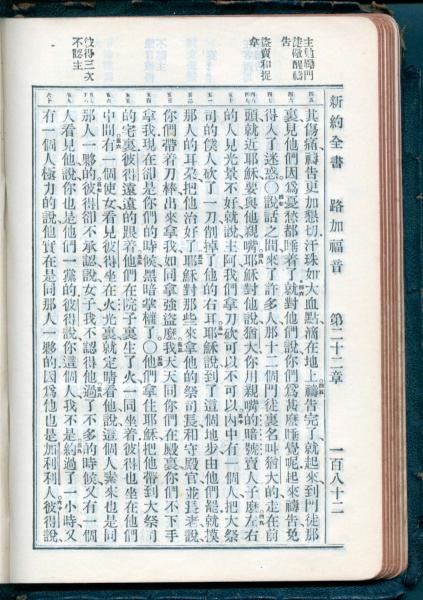 新約全書 路加福音 第二十二章 一百八十二
主勸勵門
徒儆醒禱
告
盜賣和捉
拿
彼得三次
不認主
其傷痛禱告更加懇切汗珠如大血點滴在地上禱告完了就起來到門徒那
裏見他們因爲憂愁都睡着了就對他們說你們爲甚麽睡覺呢起來禱告免
得入了迷惑○說話之間來了許多人那十二個門徒裏名叫猶大的走在前
頭就近耶穌要與他親嘴耶穌對他說猶大你用親嘴的暗號賣人子麽左右
的人見光景不好就說主阿我們拿刀砍可以不可以內中有一個人把大祭
司的僕人砍了一刀削掉了他的右耳耶穌說到了這個地步由他們罷就摸
那人的耳朶把他治好了耶穌對那些來拿他的祭司長和守殿官並長老說
你們帶着刀棒出來拿我如同拿強盜麽我天天同你們在殿裏你們不下手
拿我現在卻是你們的時候黑暗掌權了○他們拿住耶穌把他帶到大祭司
的宅裏彼得遠遠的跟着他們在院子裏生了火一同坐着彼得也坐在他們
中間有一個使女看見彼得坐在火光裏就定睛看他說這個人素來也是同
那人一夥的彼得卻不承認說女子我不認得他過了不多的時候又有一個
人看見他說你也是他們一黨的彼得說你這個人我不是約過了一小時又
有一個人極力的說他實在是同那人一夥的因爲他也是加利利人彼得說